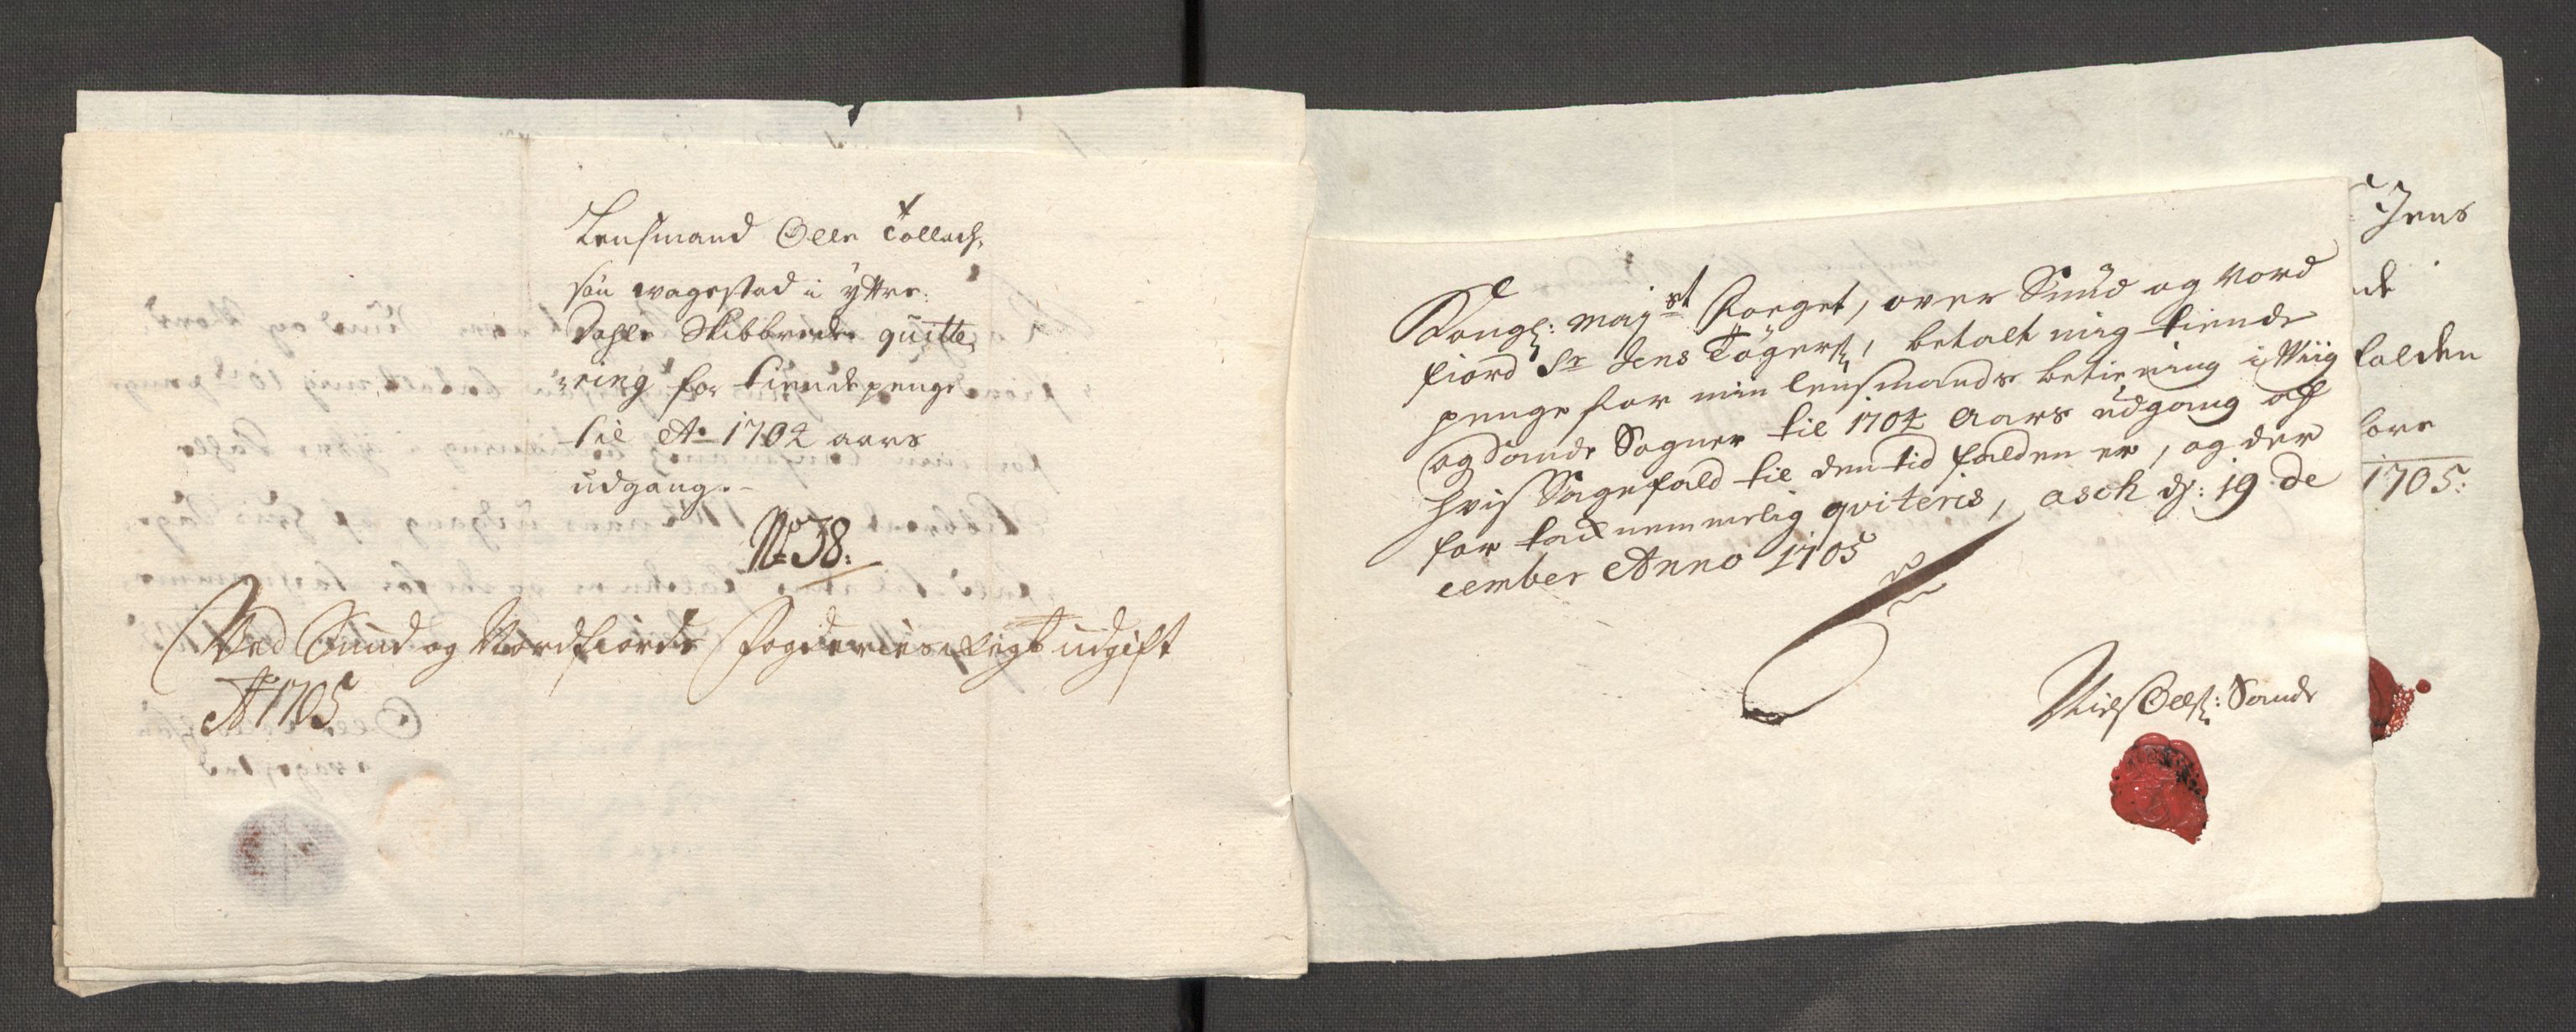 Lensmand Olle Tollach,
søn wagestad i ÿttre
Dahls Skibbrede quitte,
ring for tiendepenge
til Ao 1704 aars
udgang.
No 38:
Ved Sund og Nordfiords Fogderies Regt udgift
Ao 1705
Kongl: Majst Foeget, over Sund og Nord
fiord Sr Jens Tøgers, betalt mig tiende
penge for min lensmands betiening i Wiig
og Sande Sogner til 1704 Aars udgang af
hvis Sagefald til den tid falden er, og der
for tachnemmelig qviteris, asch d: 19 de
cember Anno 1705
Niels Oels: Sande
Jens
de
falden
fore
1705: